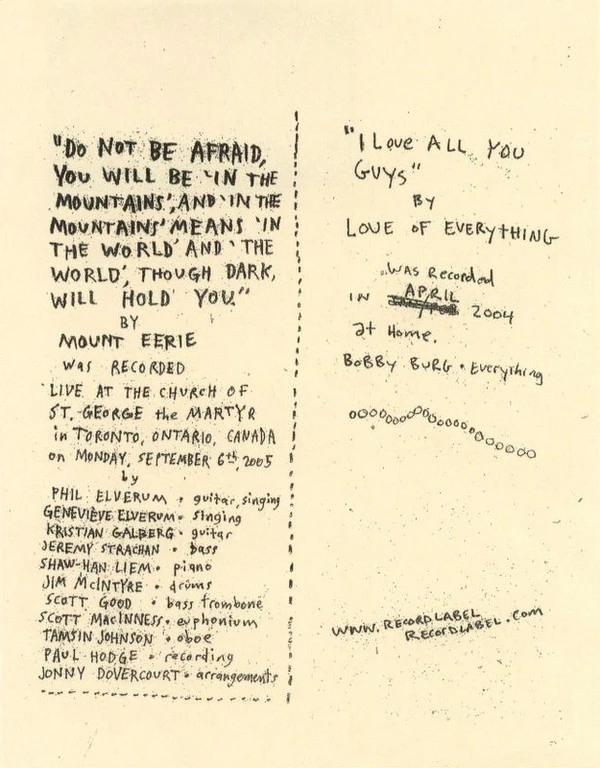 "DO NOT BE AFRAID,
YOU WILL BE 'IN THE
MOUNTAINS', AND 'IN THE
MOUNTAINS' MEANS 'IN
THE WORLD' AND 'THE
WORLD', THOUGH DARK,
WILL HOLD YOU."
BY
MOUNT EERIE
was RECORDED
LIVE AT THE CHURCH OF
ST. GEORGE the MARTYR
in TORONTO, ONTARIO, CANADA
on MONDAY, SEPTEMBER 6th, 2005
by
PHIL ELVERUM • guitar, singing
GENEVIÈVE ELVERUM • singing
KRISTIAN GALBERG • guitar
JEREMY STRACHAN • bass
SHAW-HAN LIEM • piano
JIM McINTYRE • drums
SCOTT GOOD • bass trombone
SCOTT MACINNESS • euphonium
TAMSIN JOHNSON • oboe
PAUL HODGE • recording
JONNY DOVERCOURT • arrangements
"I Love ALL YOU
GUYS"
BY
LOVE OF EVERYTHING
..WAS Recorded
IN APRIL 2004
at Home.
BOBBY BURG • Everything
WWW.RECORDLABEL
RECORDLABEL.COM